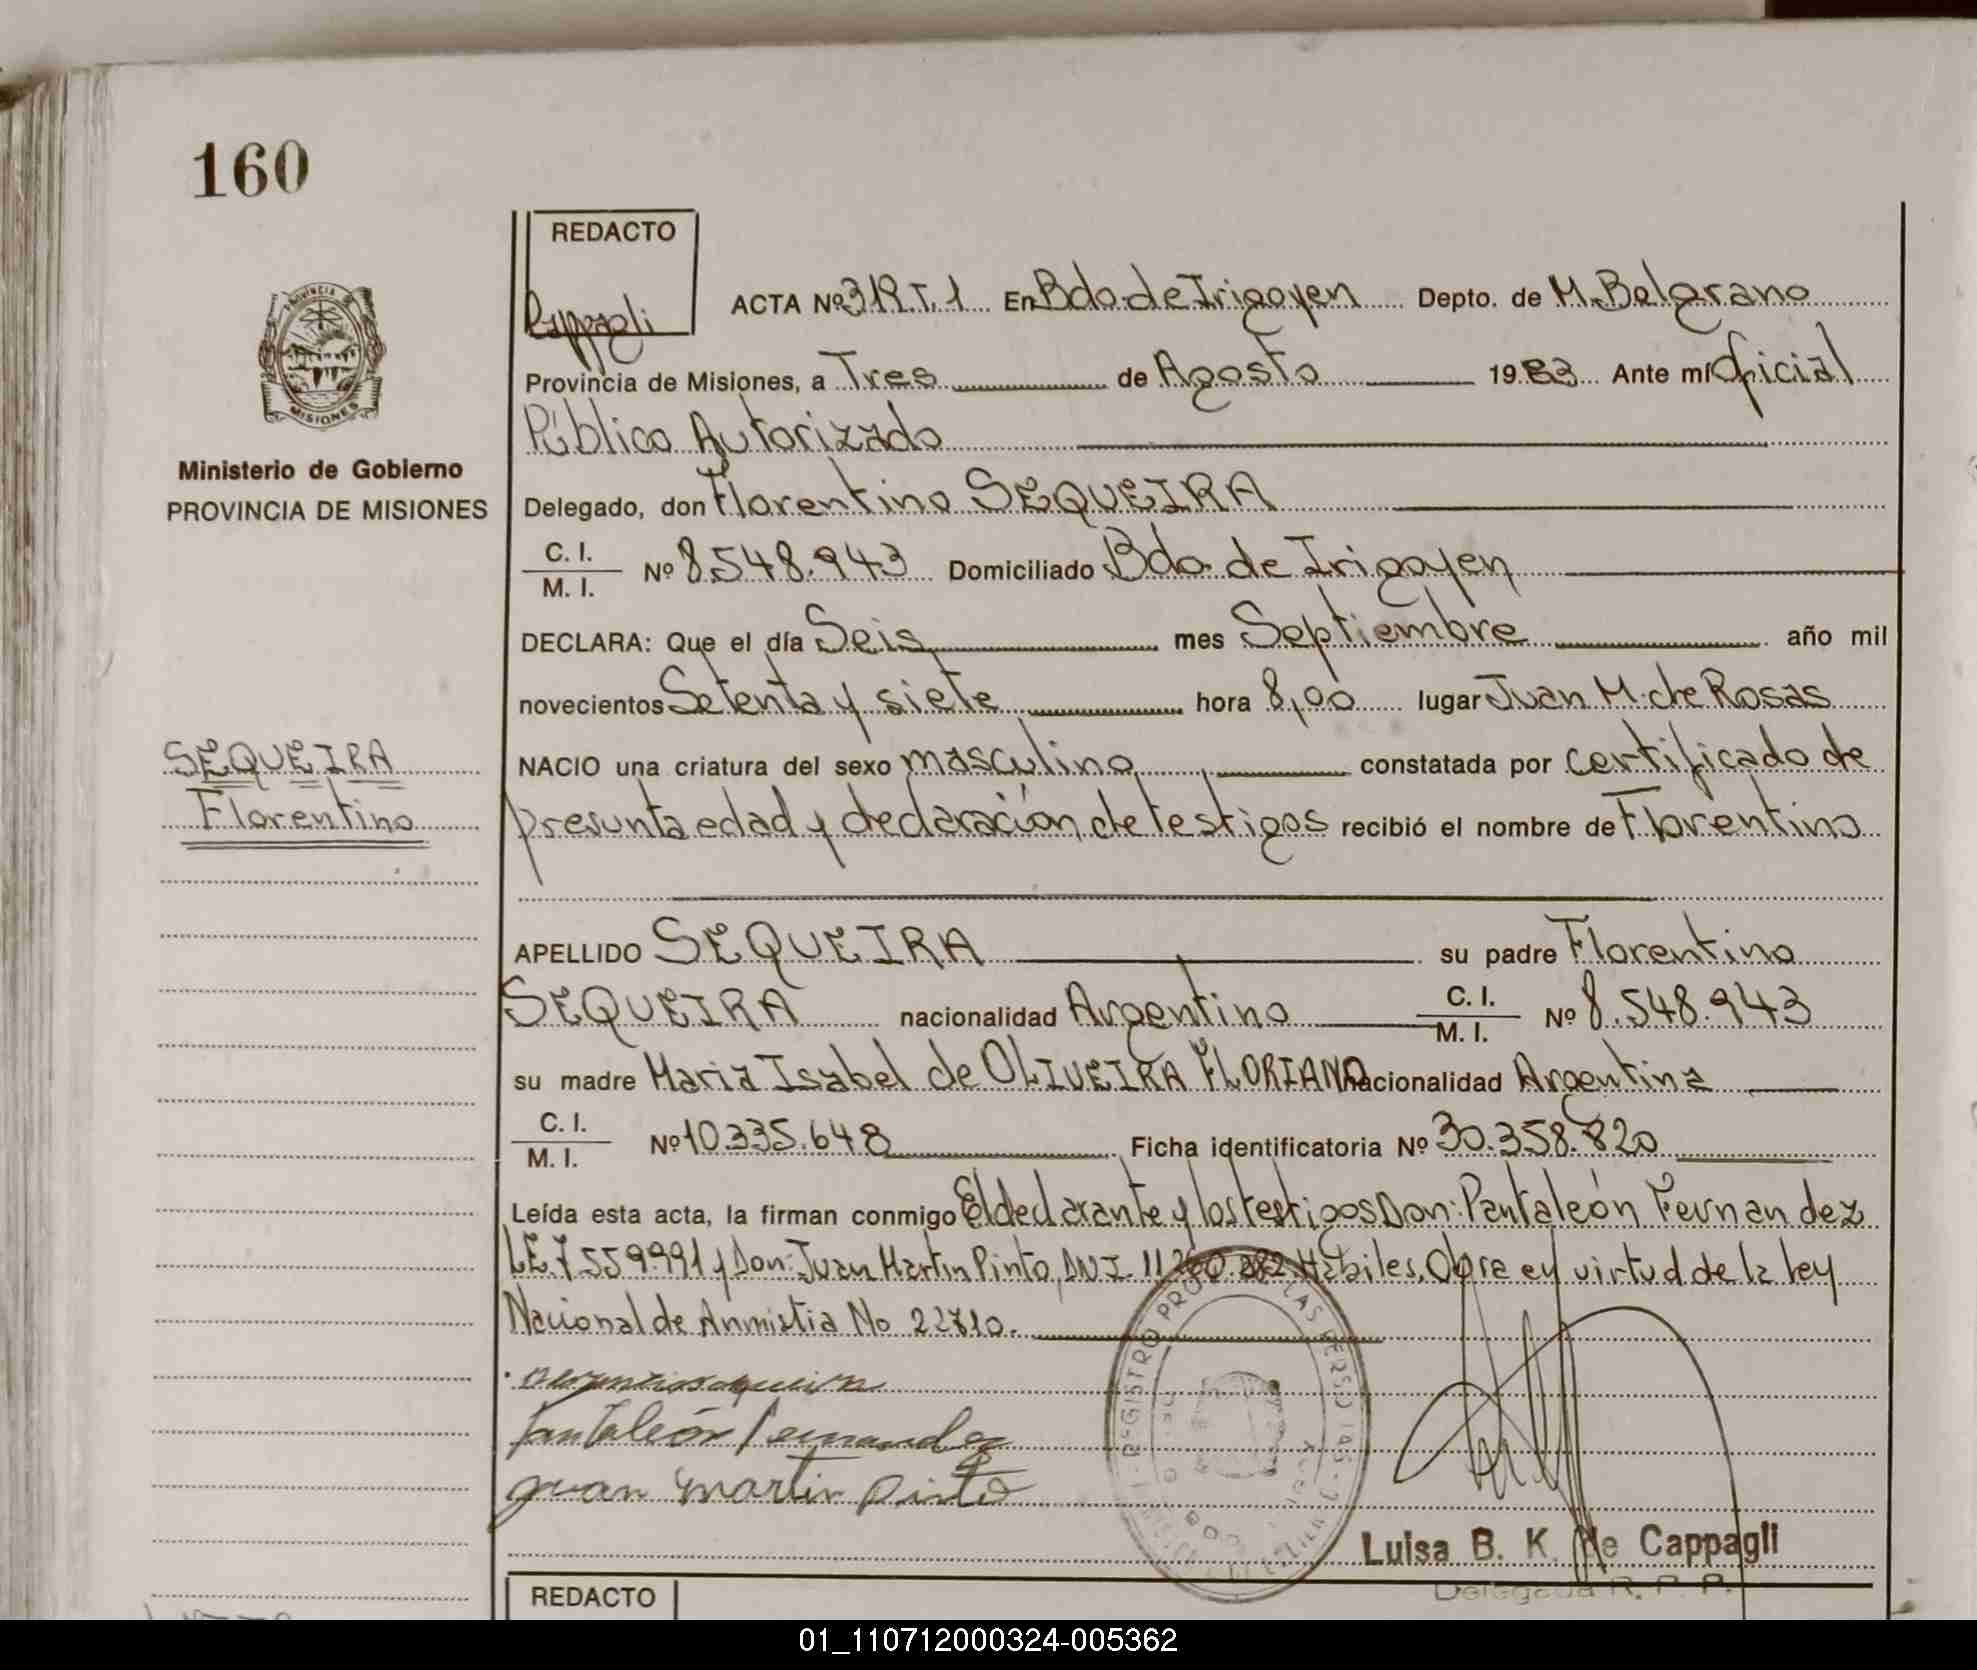 160
REDACTO
Cappagli
ACTA Nº 319 T. 1 En Bdo. de Irigoyen Depto. de M. Belgrano
Provincia de Misiones, a Tres de Agosto 1983 Ante mí Oficial
Público Autorizado
Delegado, don Florentino SEQUEIRA
C. I.
M. I. Nº 8.548.943 Domiciliado Bdo. de Irigoyen
DECLARA: Que el día Seis mes Septiembre año mil
novecientos Setenta y siete hora 8,00 lugar Juan M. de Rosas
NACIO una criatura del sexo masculino constatada por certificado de
presunta edad y declaración de testigos recibió el nombre de Florentino
APELLIDO SEQUEIRA su padre Florentino
SEQUEIRA nacionalidad Argentino C. I. M. I. Nº 8.548.943
su madre Maria Isabel de OLIVEIRA FLORIANO nacionalidad Argentina
C. I.
M. I. Nº 10.335.648 Ficha identificatoria Nº 30.358.820
Leída esta acta, la firman conmigo El declarante y los testigos Don: Pantaleón Fernandez
L.E. 7.559.991 y Don: Juan Martin Pinto, DNI. Hábiles. Obra en virtud de la ley
Nacional de Anmistia No 22810.
Pantaleón Fernandez
juan martin pinto
Luisa B. K. de Cappagli
Delegada R. P. P.
REDACTO
PROVINCIA DE
MISIONES
Ministerio de Gobierno
PROVINCIA DE MISIONES
SEQUEIRA
Florentino
01_110712000324-005362